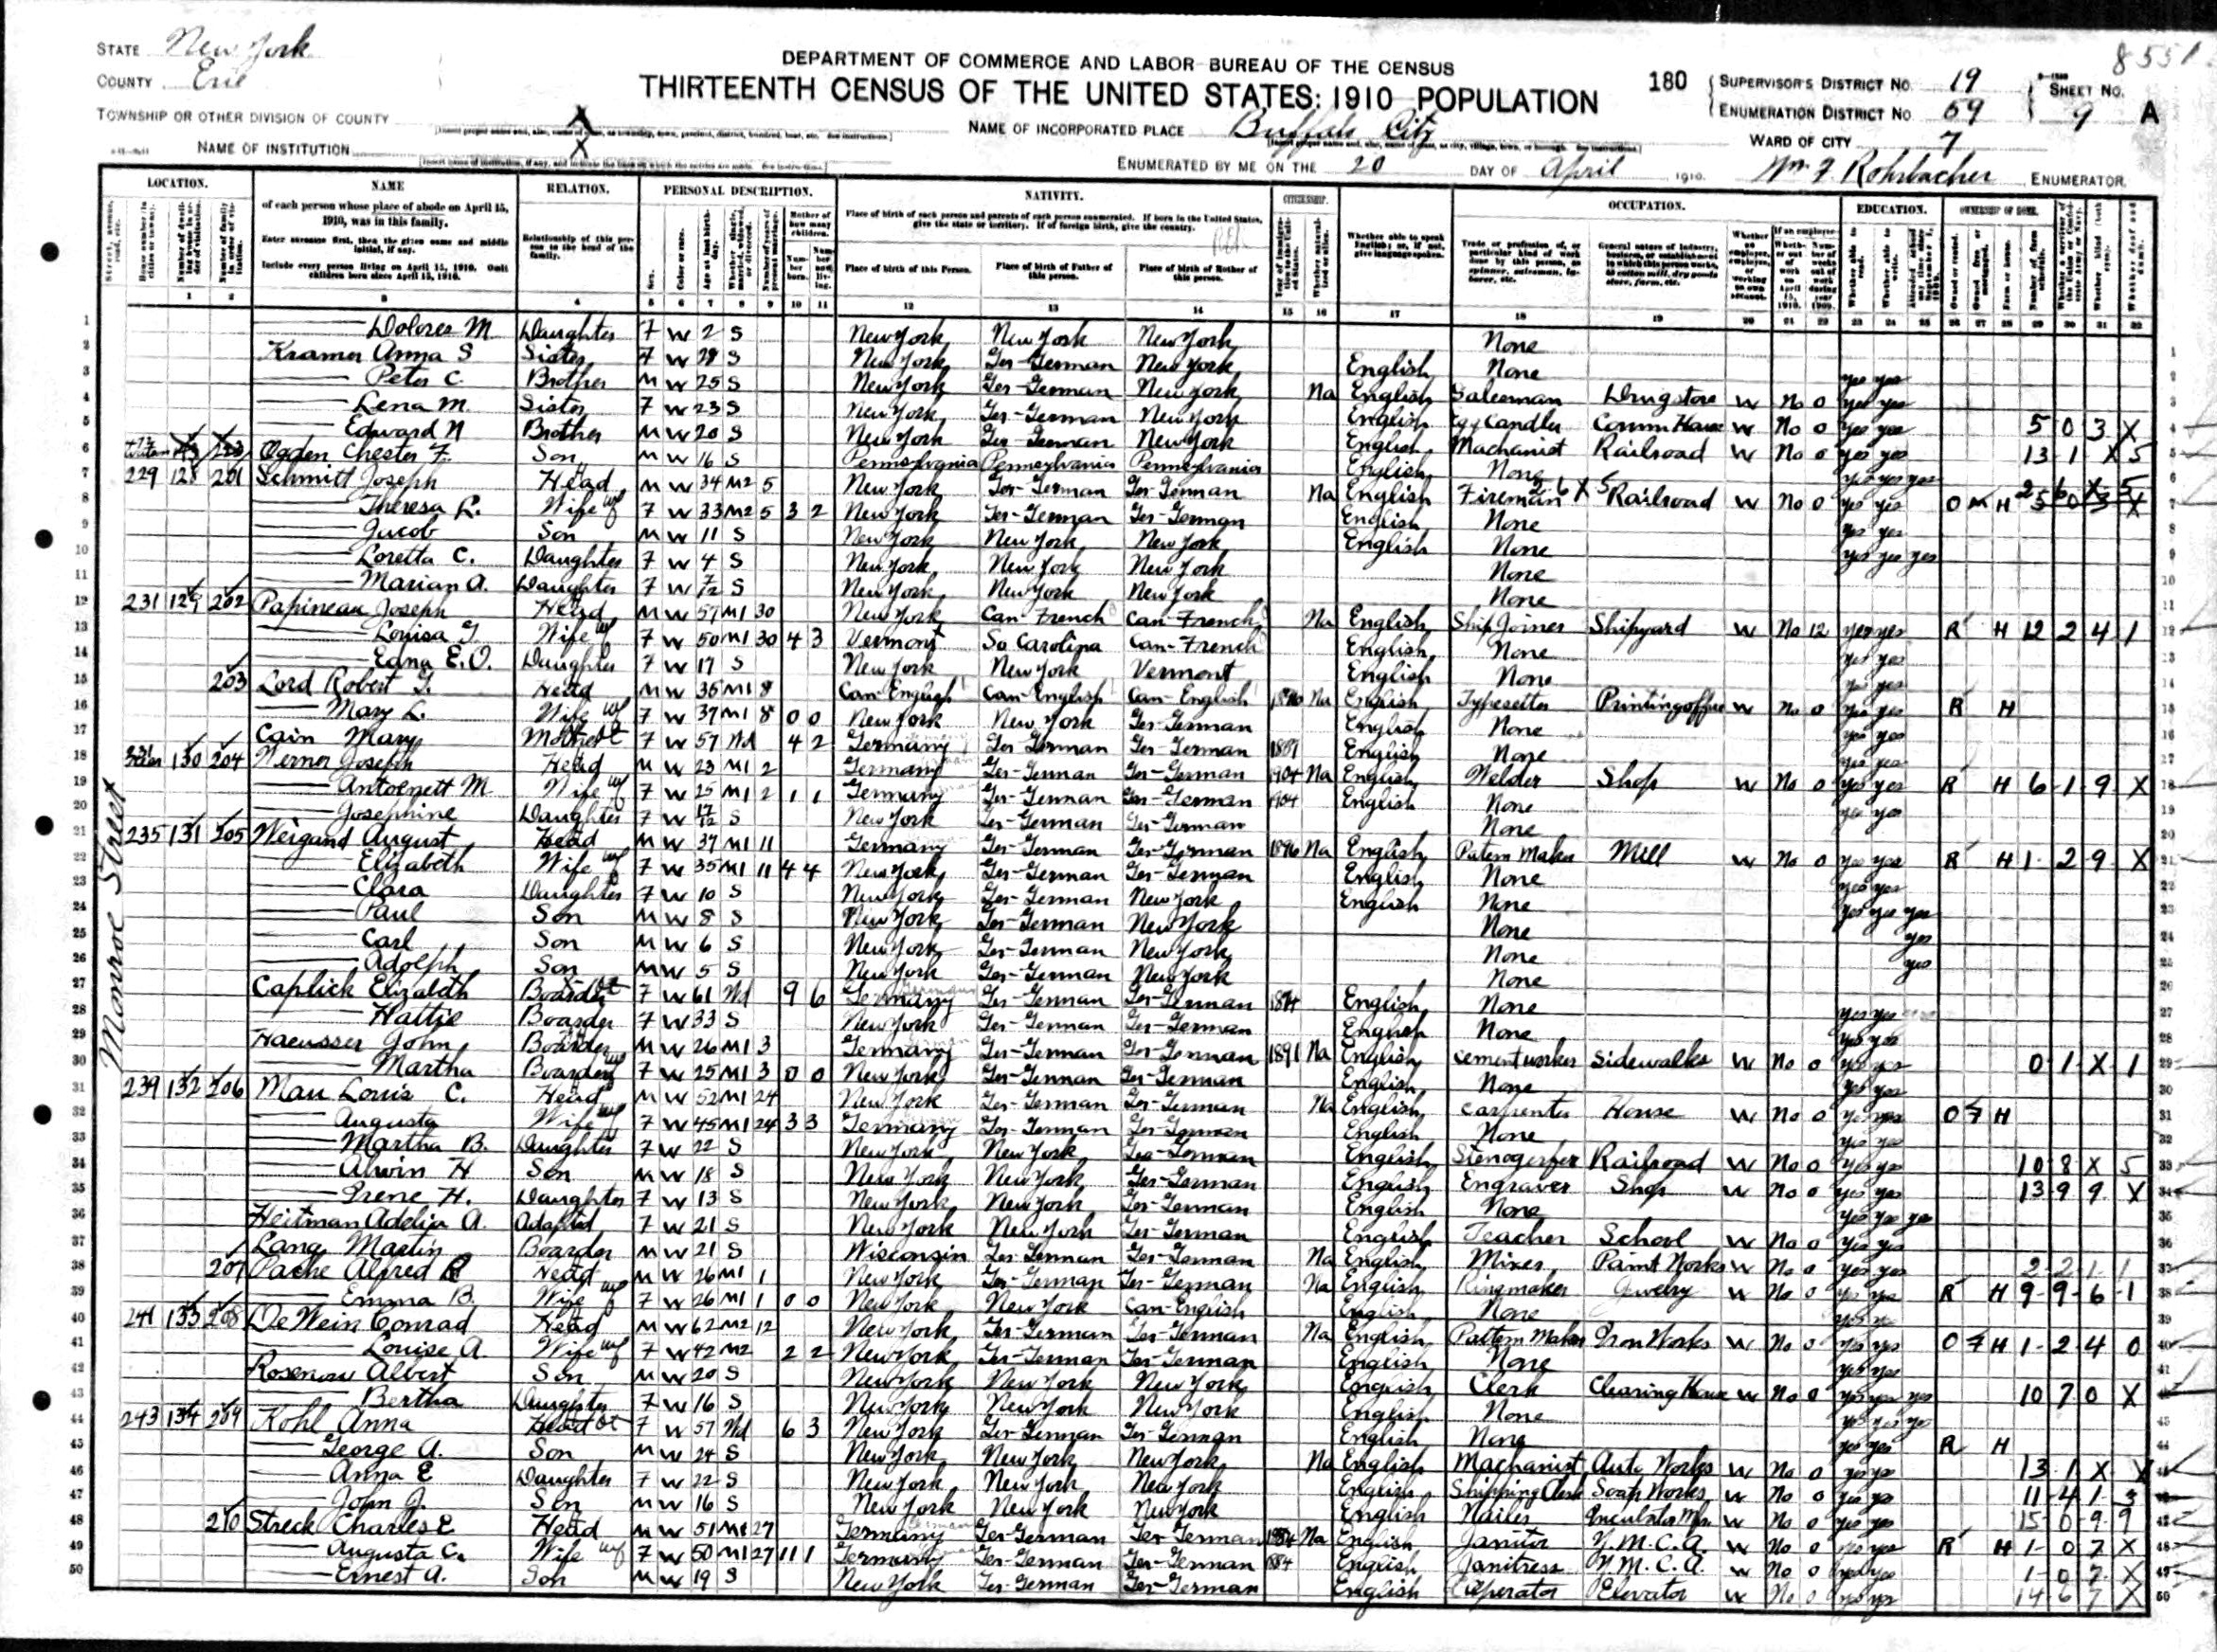 8551
STATE New York
COUNTY Erie
TOWNSHIP OR OTHER DIVISION OF COUNTY X
NAME OF INSTITUTION X
DEPARTMENT OF COMMERCE AND LABOR-BUREAU OF THE CENSUS
THIRTEENTH CENSUS OF THE UNITED STATES: 1910 POPULATION
NAME OF INCORPORATED PLACE Buffalo City
ENUMERATED BY ME ON THE 20 DAY OF April 1910.
180
SUPERVISOR'S DISTRICT NO. 19
ENUMERATION DISTRICT NO. 59
SHEET NO. 9 A
WARD OF CITY 7
Wm F. Rohrbacher ENUMERATOR.
LOCATION. NAME RELATION. PERSONAL DESCRIPTION. NATIVITY. CITIZENSHIP. OCCUPATION. EDUCATION. OWNERSHIP OF HOME.
of each person whose place of abode on April 15, 1910, was in this family.
Enter surname first, then the given name and middle initial, if any.
Include every person living on April 15, 1910. Omit children born since April 15, 1910.
Relationship of this person to the head of the family.
Place of birth of each person and parents of each person enumerated. If born in the United States, give the state or territory. If of foreign birth, give the country.
Place of birth of this Person. Place of birth of Father of this person. Place of birth of Mother of this person.
Monroe Street
1 Dolores M Daughter F W 2 S New York New York New York None
2 Kramer Anna S Sister F W 28 S New York Ger-German New York English None yes yes
3 Peter C. Brother M W 25 S New York Ger-German New York Na English Salesman Drugstore W No 0 yes yes
4 Lena M. Sister F W 23 S New York Ger-German New York English Egg Candler Comm House W No 0 yes yes 5 0 3 X
5 Edward N Brother M W 20 S New York Ger-German New York English Machanist Railroad W No 0 yes yes 13 1 X 5
6 Ogden Chester F. Son M W 16 S Pennsylvania Pennsylvania Pennsylvania English None yes yes yes
7 229 128 201 Schmitt Joseph Head M W 34 M2 5 New York Ger-German Ger-German Na English Fireman Railroad W No 0 yes yes O M H
8 Theresa L. Wife F W 33 M2 5 3 2 New York Ger-German Ger-German English None yes yes
9 Jacob Son M W 11 S New York New York New York English None yes yes yes
10 Loretta C. Daughter F W 4 S New York New York New York None
11 Marian A. Daughter F W 7/12 S New York New York New York None
12 231 129 202 Papineau Joseph Head M W 57 M1 30 New York Can-French Can-French Na English Ship Joiner Shipyard W No 12 yes yes R H 12 2 4 1
13 Louisa G. Wife F W 50 M1 30 4 3 Vermont So Carolina Can-French English None yes yes
14 Edna E.O. Daughter F W 17 S New York New York Vermont English None yes yes
15 203 Lord Robert G. Head M W 35 M1 8 Can-English Can-English Can-English Na English Typesetter Printing office W No 0 yes yes R H
16 Mary L. Wife F W 37 M1 8 0 0 New York New York Ger-German English None yes yes
17 Cain Mary Mother F W 57 Wd 4 2 Germany Ger-German Ger-German English None yes yes
18 130 204 Werner Joseph Head M W 23 M1 2 Germany Ger-German Ger-German 1904 Na English Welder Shop W No 0 yes yes R H 6-1-9 X
19 Antoenett M Wife F W 25 M1 2 1 1 Germany Ger-German Ger-German 1904 English None yes yes
20 Josephine Daughter F W S New York Ger-German Ger-German None
21 235 131 205 Weigand August Head M W 37 M1 11 Germany Ger-German Ger-German 1896 Na English Patern Maker Mill W No 0 yes yes R H 1-2 9 X
22 Elizabeth Wife F W 35 M1 11 4 4 New York Ger-German Ger-German English None yes yes
23 Clara Daughter F W 10 S New York Ger-German New York English None yes yes yes
24 Paul Son M W 8 S New York Ger-German New York None yes
25 Carl Son M W 6 S New York Ger-German New York None yes
26 Adolph Son M W 5 S New York Ger-German New York None
27 Caplick Elizabeth Boarder F W 61 Wd 9 6 Germany Ger-German Ger-German English None yes yes
28 Hattie Boarder F W 33 S New York Ger-German Ger-German English None yes yes
29 Haeusser John Boarder M W 26 M1 3 Germany Ger-German Ger-German 1891 Na English Cement worker Sidewalks W No 0 yes yes 0 1 X 1
30 Martha Boarder F W 25 M1 3 0 0 New York Ger-German Ger-German English None yes yes
31 239 132 206 Mau Louis C. Head M W 52 M1 24 New York Ger-German Ger-German Na English Carpenter House W No 0 yes yes O F H
32 Augusta Wife F W 45 M1 24 3 3 Germany Ger-German Ger-German English None yes yes
33 Martha B. Daughter F W 22 S New York New York Ger-German English Stenogerfer Railroad W No 0 yes yes 10 8 X 5
34 Alwin H Son M W 18 S New York New York Ger-German English Engraver Shop W No 0 yes yes 13 9 9 X
35 Irene H. Daughter F W 13 S New York New York Ger-German English None yes yes yes
36 Heitman Adelia A. Adopted F W 21 S New York New York Ger-German English Teacher School W No 0 yes yes
37 Lang Martin Boarder M W 21 S Wisconsin Ger-German Ger-German Na English Mixer Paint Works W No 0 yes yes 2-2 1-1
38 207 Pache Alfred R Head M W 26 M1 1 New York Ger-German Ger-German Na English Ringmaker Jewelry W No 0 yes yes R H 9-9-6-1
39 Emma B. Wife F W 26 M1 1 0 0 New York New York Can-English English None yes yes
40 241 133 208 DeWein Conrad Head M W 62 M2 12 New York Ger-German Ger-German Na English Pattern Maker Iron Works W No 0 yes yes O F H 1-2 4 0
41 Louise A. Wife F W 42 M2 2 2 New York Ger-German Ger-German English None yes yes
42 Rosenow Albert Son M W 20 S New York New York New York English Clerk Clearing House W No 0 yes yes yes 10 7 0 X
43 Bertha Daughter F W 16 S New York New York New York English None yes yes yes
44 243 134 209 Kohl Anna Head F W 57 Wd 6 3 New York Ger-German Ger-German English None yes yes R H
45 George A. Son M W 24 S New York New York New York Na English Machanist Auto Works W No 0 yes yes 13-1 X X
46 Anna E Daughter F W 22 S New York New York New York English Shipping Clerk Soap Works W No 0 yes yes 11-4 1-3
47 John J. Son M W 16 S New York New York New York English Nailer W No 0 yes yes 15-0 9 9
48 210 Streck Charles E Head M W 51 M1 27 Germany Ger-German Ger-German Na English Janitor Y.M.C.A. W No 0 yes yes R H 1-0 7 X
49 Augusta C. Wife F W 50 M1 27 11 1 Germany Ger-German Ger-German 1884 English Janitress Y.M.C.A. W No 0 yes yes 1-0 7 X
50 Ernest A. Son M W 19 S New York Ger-German Ger-German English Operator Elevator W No 0 yes yes 14-6 7 X